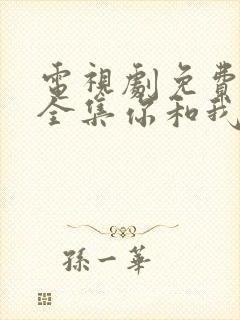 電視劇免費
全集你和我
孫一華